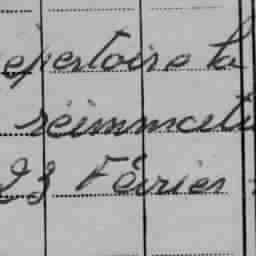 epertoire la
réimmatu
23 Février